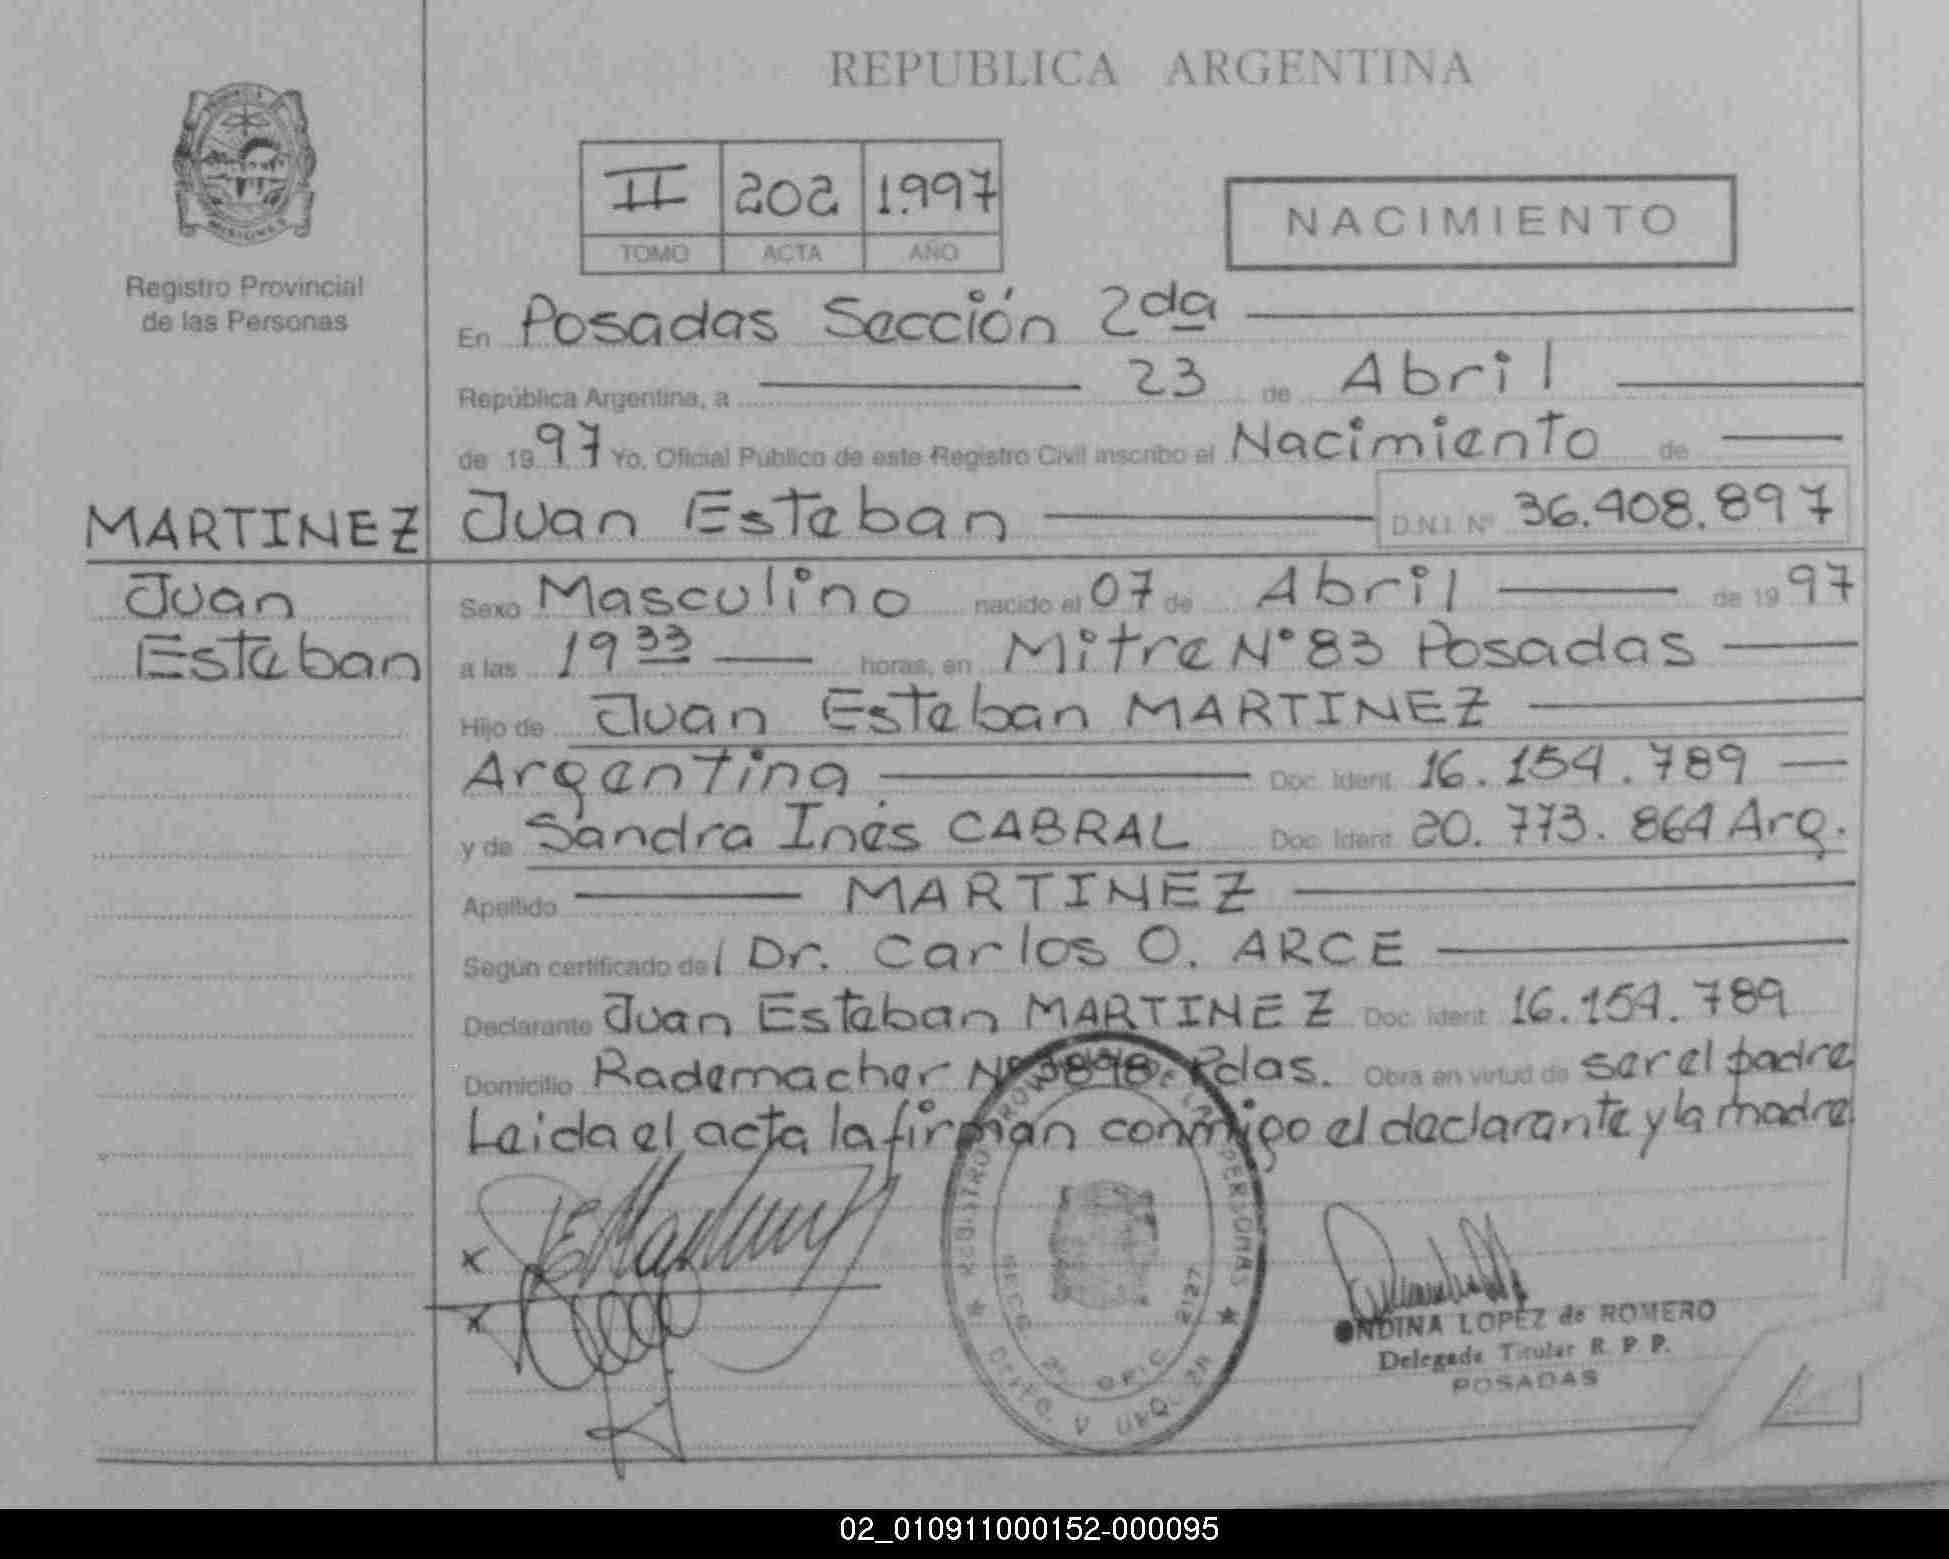 REPUBLICA ARGENTINA
MISIONES
Registro Provincial
de las Personas
II 202 1.997
TOMO ACTA AÑO
NACIMIENTO
En Posadas Sección 2da
República Argentina, a 23 de Abril
de 1997 Yo, Oficial Público de este Registro Civil inscribo el Nacimiento de
MARTINEZ Juan Esteban D.N.I. Nº 36.408.897
Juan
Esteban
Sexo Masculino nacido el 07 de Abril de 1997
a las 19 33 horas, en Mitre Nº 83 Posadas
Hijo de Juan Esteban MARTINEZ
Argentina Doc. Ident. 16.154.789
y de Sandra Inés CABRAL Doc. Ident. 20.773.864 Arg.
Apellido MARTINEZ
Según certificado del Dr. Carlos O. ARCE
Declarante Juan Esteban MARTINEZ Doc. Ident. 16.154.789
Domicilio Rademacher Nº Pdas. Obra en virtud de ser el padre
Leida el acta la firman conmigo el declarante y la madre
x
x
REGISTRO PROVINCIAL DE LAS PERSONAS
SECC. 2ª OFIC. 2127
DPTO.
ONDINA LOPEZ de ROMERO
Delegada Titular R. P. P.
POSADAS
02_010911000152-000095